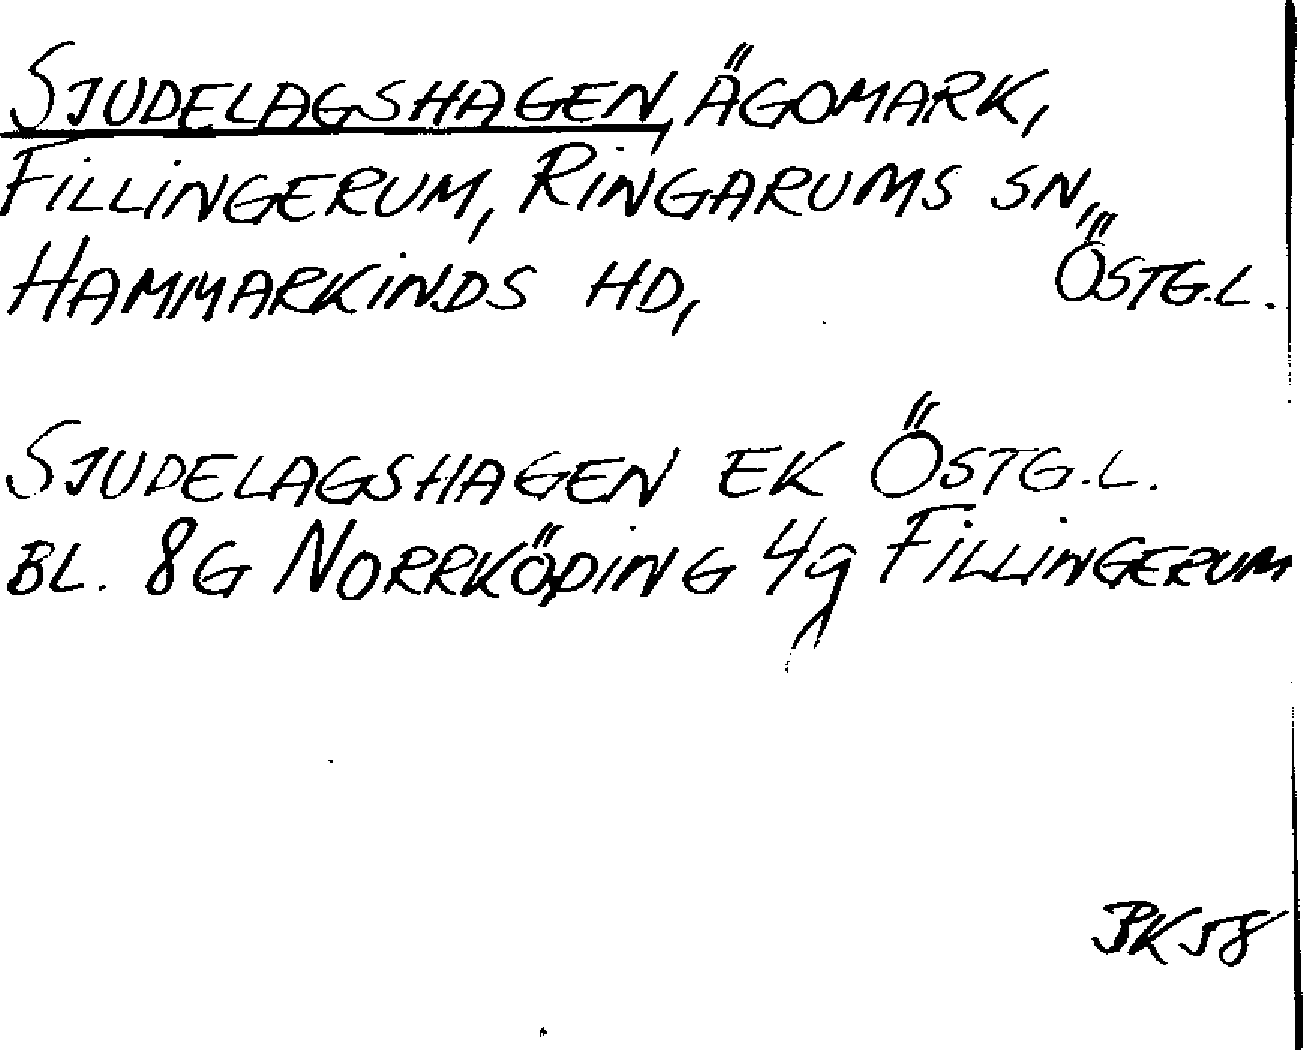 SJUDELAGSHAGEN, ÄGOMARK,
FILLINGERUM, RINGARUMS SN,
HAMMARKINDS HD, ÖSTG.L.
SJUDELAGSHAGEN EK ÖSTG.L.
BL. 8G NORRKÖPING 4g FILLINGERUM
PK58